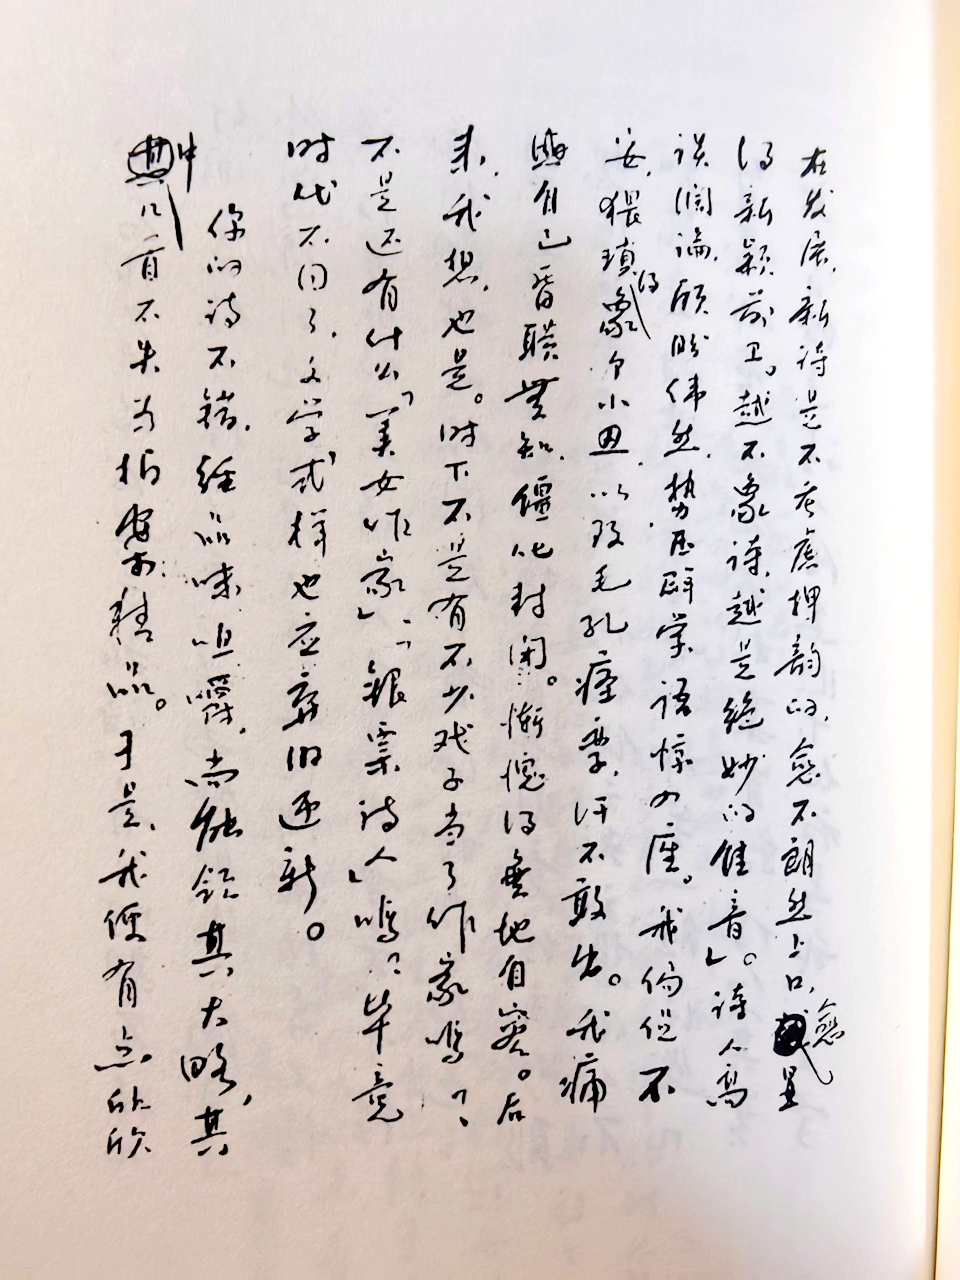 在发展，新诗是不考虑押韵的，愈不朗然上口，愈是
得新颖前卫。越不象诗，越是绝妙的佳音」。诗人高
谈阔论，顾盼伟然，势压群崇，语惊四座。我侷促不
安，猥琐得象个小丑，以致毛孔痉挛，汗不敢出。我痛
与自己昏聩无知，僵化封闭。惭愧得无地自容。后
来，我想，也是。时下不是有不少戏子当了作家吗？
不是还有什么「美女作家」、「银票诗人」吗？毕竟
时代不同了，文学式样也应弃旧迎新。
你的诗不错，经品味咀嚼，尚能领其大略，其
中几首不失为拍案精品。于是，我便有点欣欣